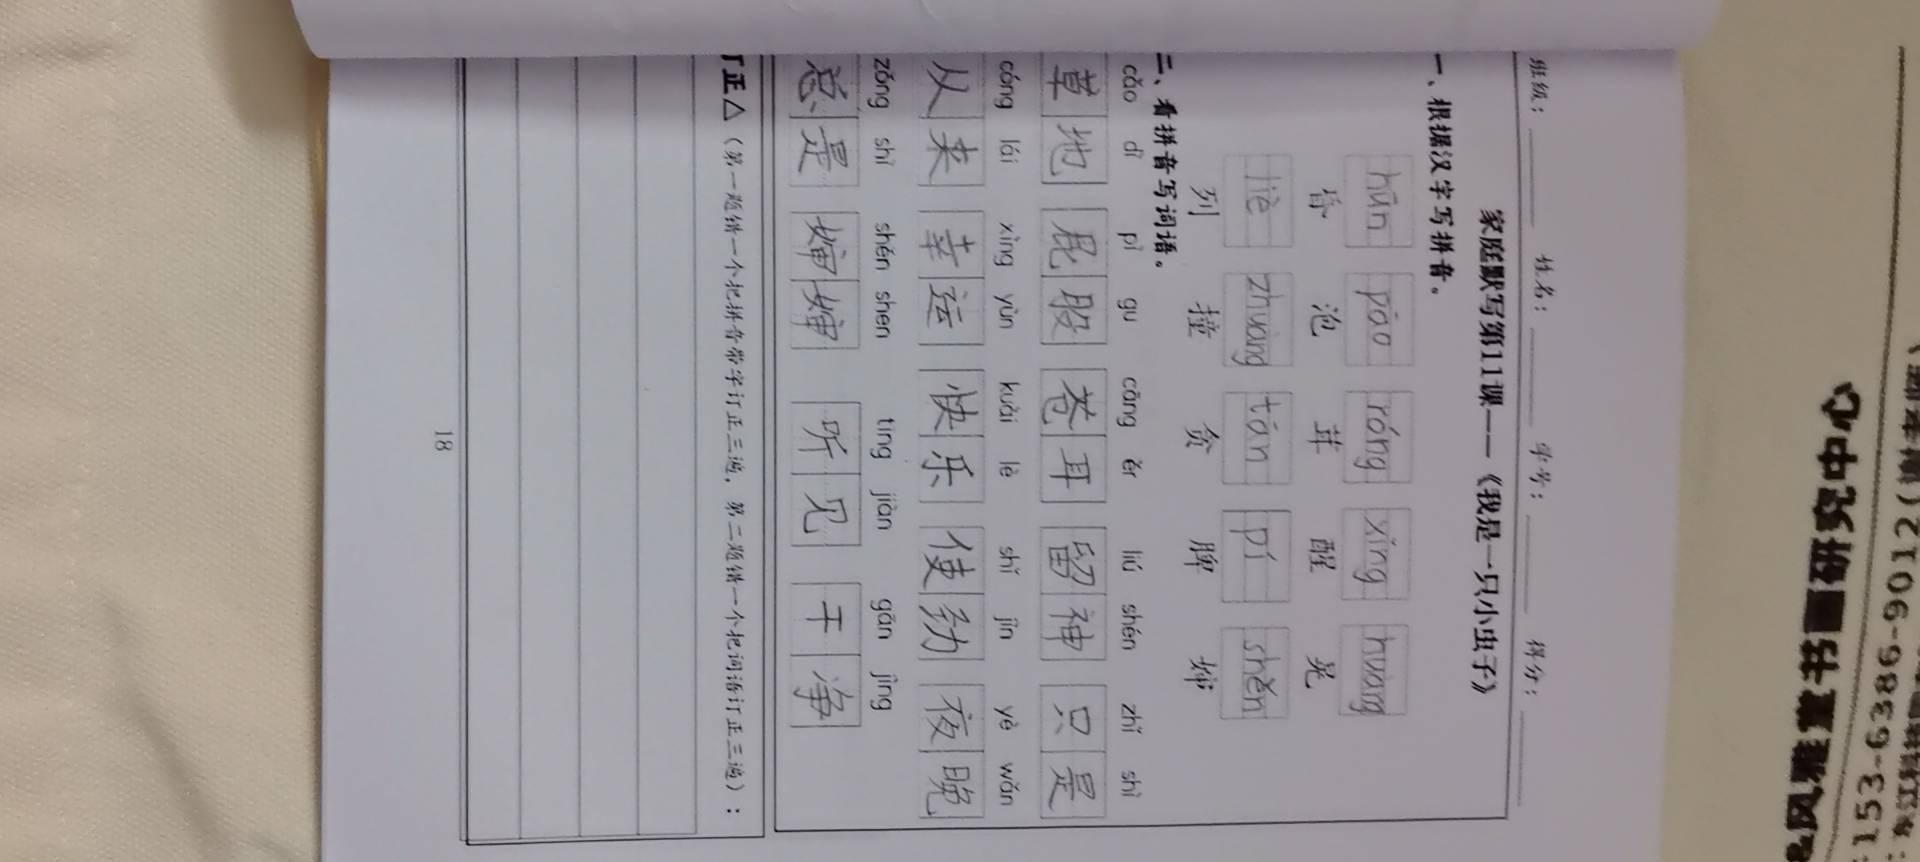 班级： 姓名： 学号： 得分：
家庭默写第11课——《我是一只小虫子》
一、根据汉字写拼音。
hūn pào róng xǐng huàng
昏 泡 茸 醒 晃
liè zhuàng tān pí shěn
列 撞 贪 脾 婶
二、看拼音写词语。
cǎo dì pì gu cāng ěr liú shén zhǐ shì
草地 屁股 苍耳 留神 只是
cóng lái xìng yùn kuài lè shǐ jìn yè wǎn
从来 幸运 快乐 使劲 夜晚
zǒng shì shěn shen tīng jiàn gān jìng
总是 婶婶 听见 干净
订正△（第一题错一个把拼音带字订正三遍，第二题错一个把词语订正三遍）：
18
&风雅堂书画研究中心
153-6386-9012